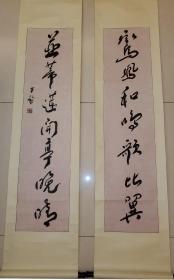 鸞鳳和鳴歌比翼
並蒂蓮開享晚晴